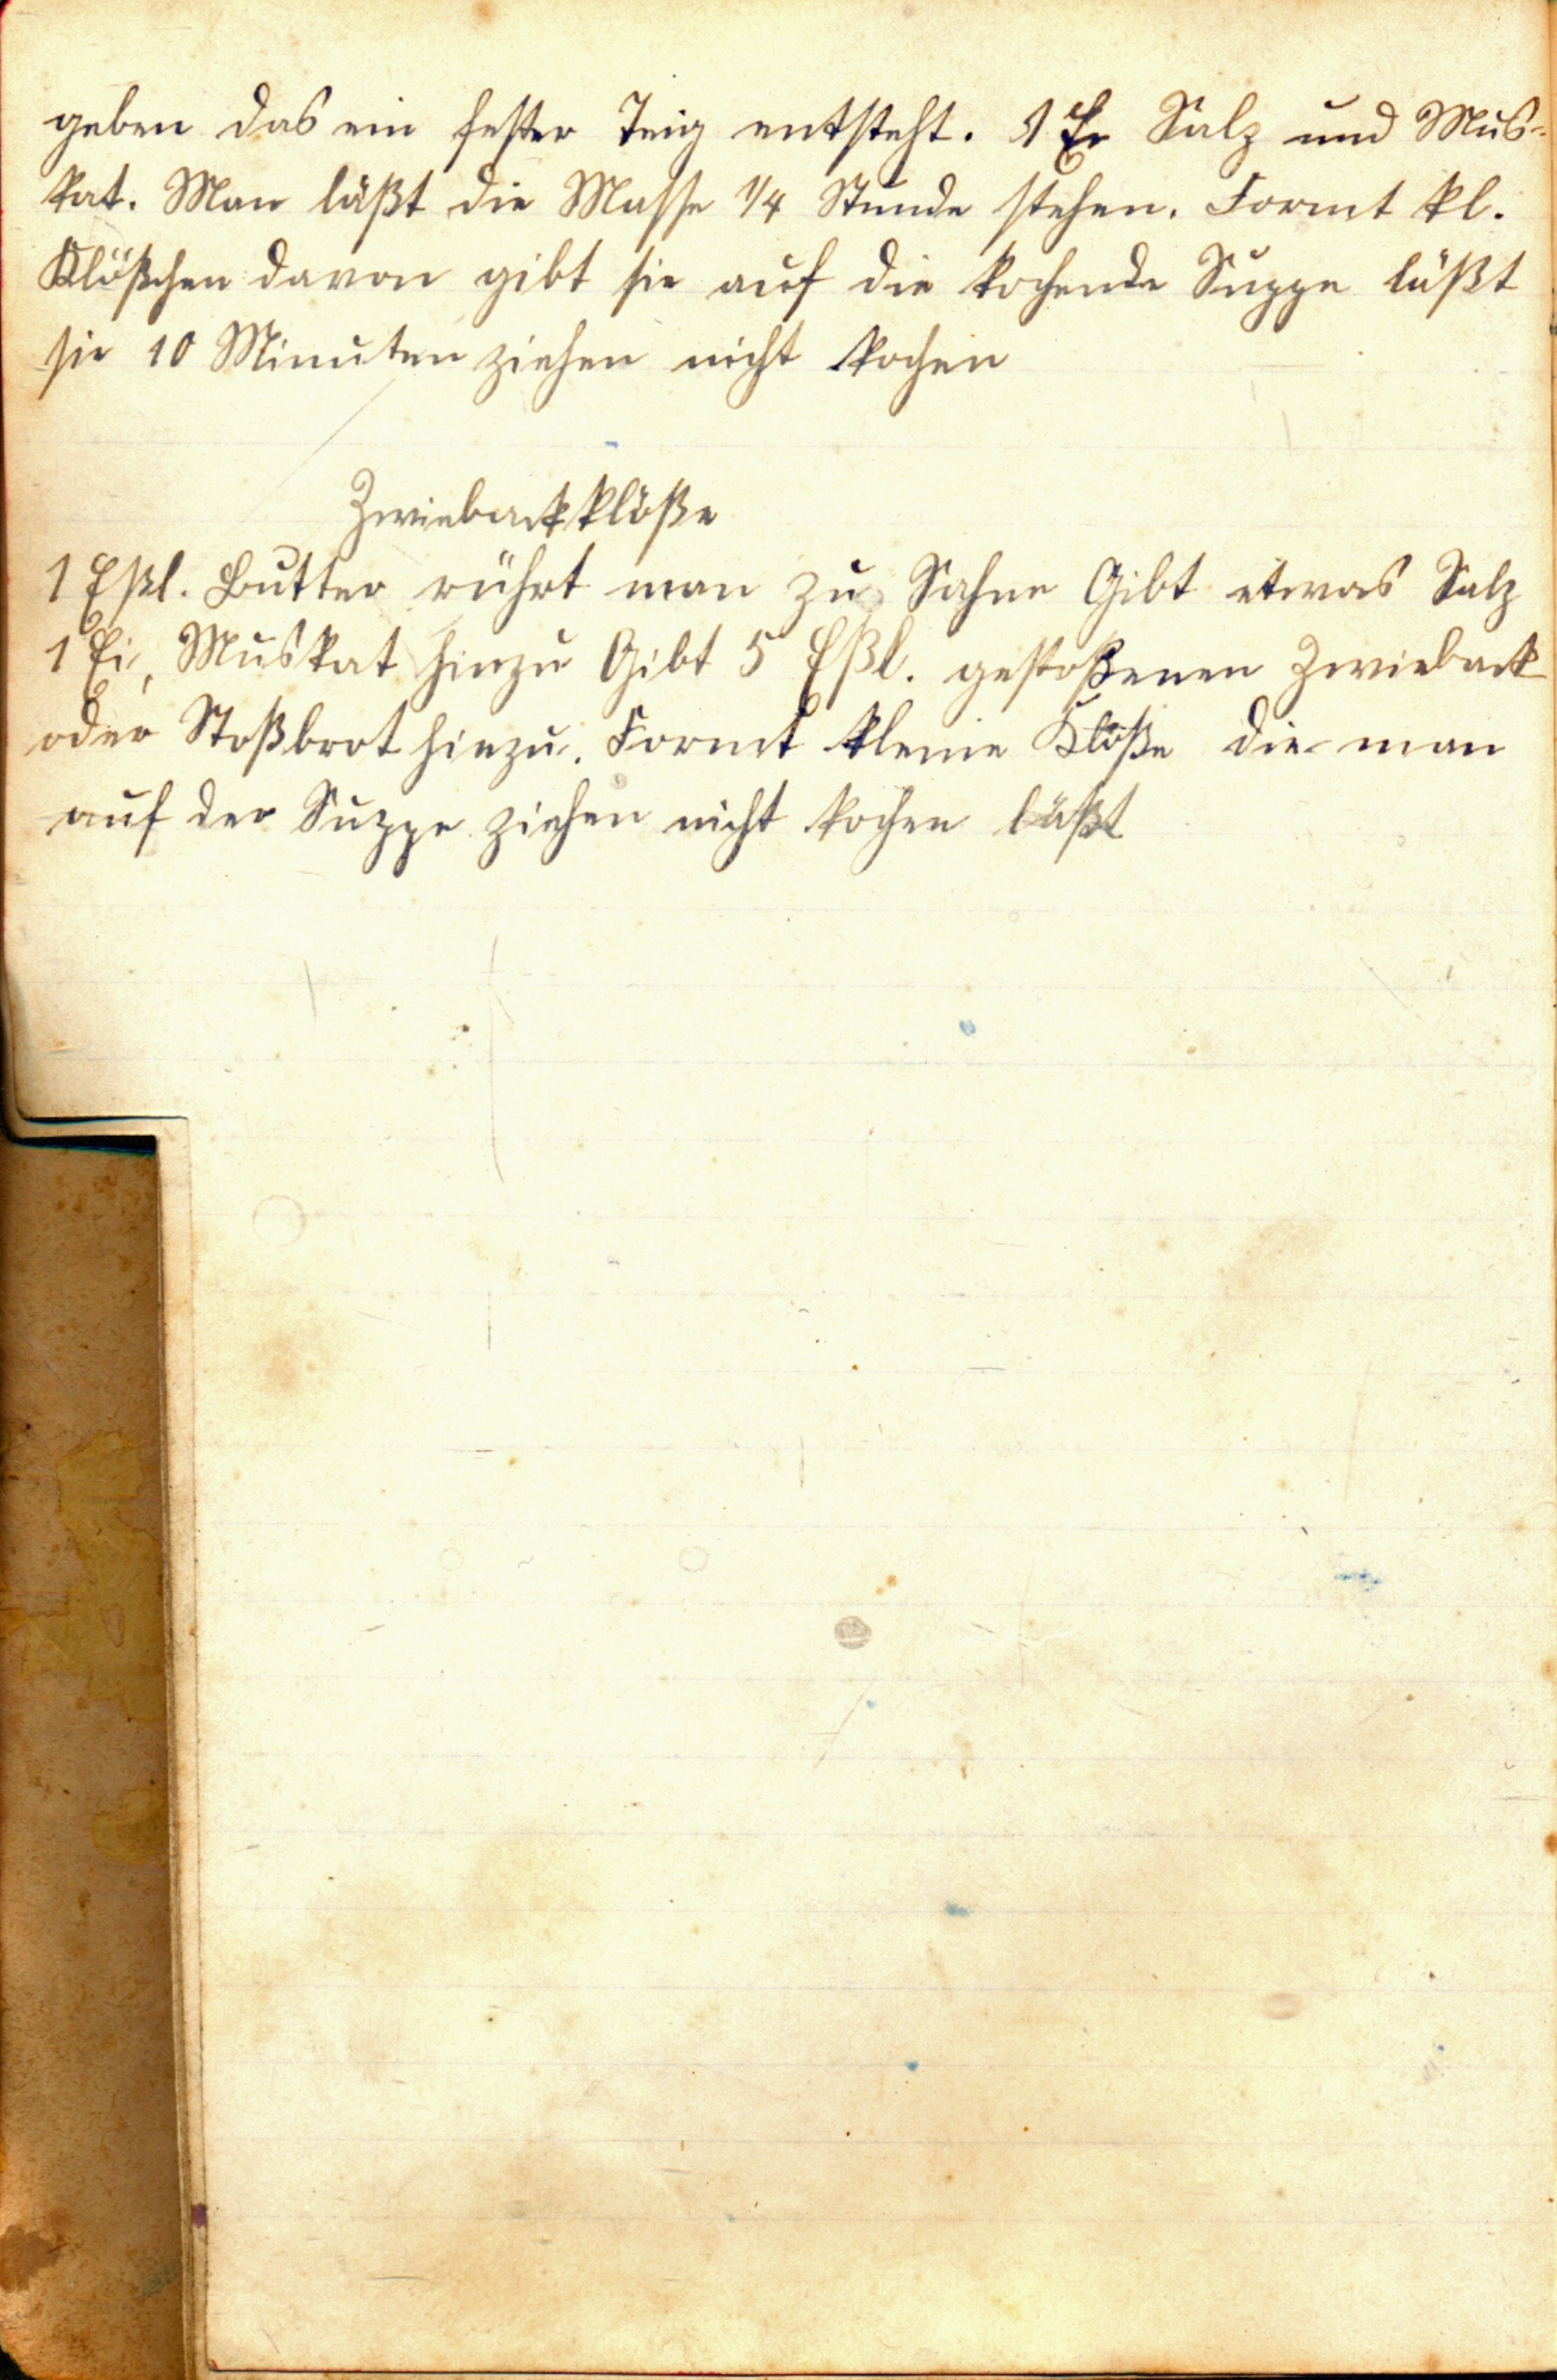 geben das ein fester Teig entsteht. 1 Ei Salz und Mus-
kat. Man läßt die Masse 1/4 Stunde stehen. Formt kl.
Klößchen davon gibt sie auf die kochende Suppe läßt
sie 10 Minuten ziehen nicht kochen
Zwiebackklöße
1 Eßl. Butter rührt man zu Sahne Gibt etwas Salz
1 Ei, Muskat hinzu Gibt 5 Eßl. gestoßenen Zwieback
oder Stoßbrot hinzu. Formt kleine Klöße die man
auf der Suppe ziehen nicht kochen läßt